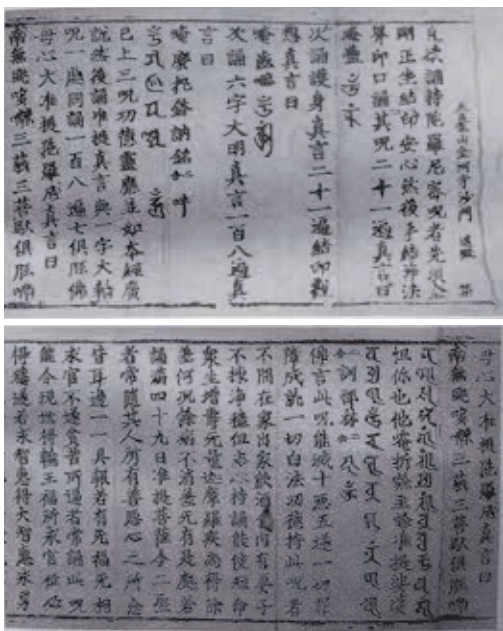 五臺山金河寺沙門 道㲀 集
凡欲誦持陀羅尼密呪者先須
剛正坐結印安心然後手結
界印口誦其呪二十一遍真言曰
唵嚂
次誦護身真言二十一遍結印觀
想真言曰
唵齒㘕
次誦六字大明真言一百八遍真
言曰
唵麽抳鉢訥銘吽
已上三呪功德靈應並如本經廣
說然後誦准提真言與一字大輪
呪一處同誦一百八遍七俱胝佛
母心大准提陀羅尼真言曰
南無颯哆喃三藐三菩馱俱胝喃
母心大准提陀羅尼真言曰
南無颯哆喃三藐三菩馱俱胝喃
怛你也他唵折隸主隸准提娑婆
訶部林
佛言此呪能滅十惡五逆一切罪
障成就一切白法功德持此呪者
不問在家出家飲酒食肉有妻子
不揀淨穢但志心持誦能使短命
衆生增壽无量迦摩羅疾尚得除
差何況餘病不消差无有是處若
誦滿四十九日准提菩薩令二聖
者常隨其人所有善惡心之所念
皆耳邊一一具報若有无福无相
求官不遂貧苦所逼若常誦此呪
能令現世得輪王福所求官位必
得稱遂若求智惠得大智惠求男